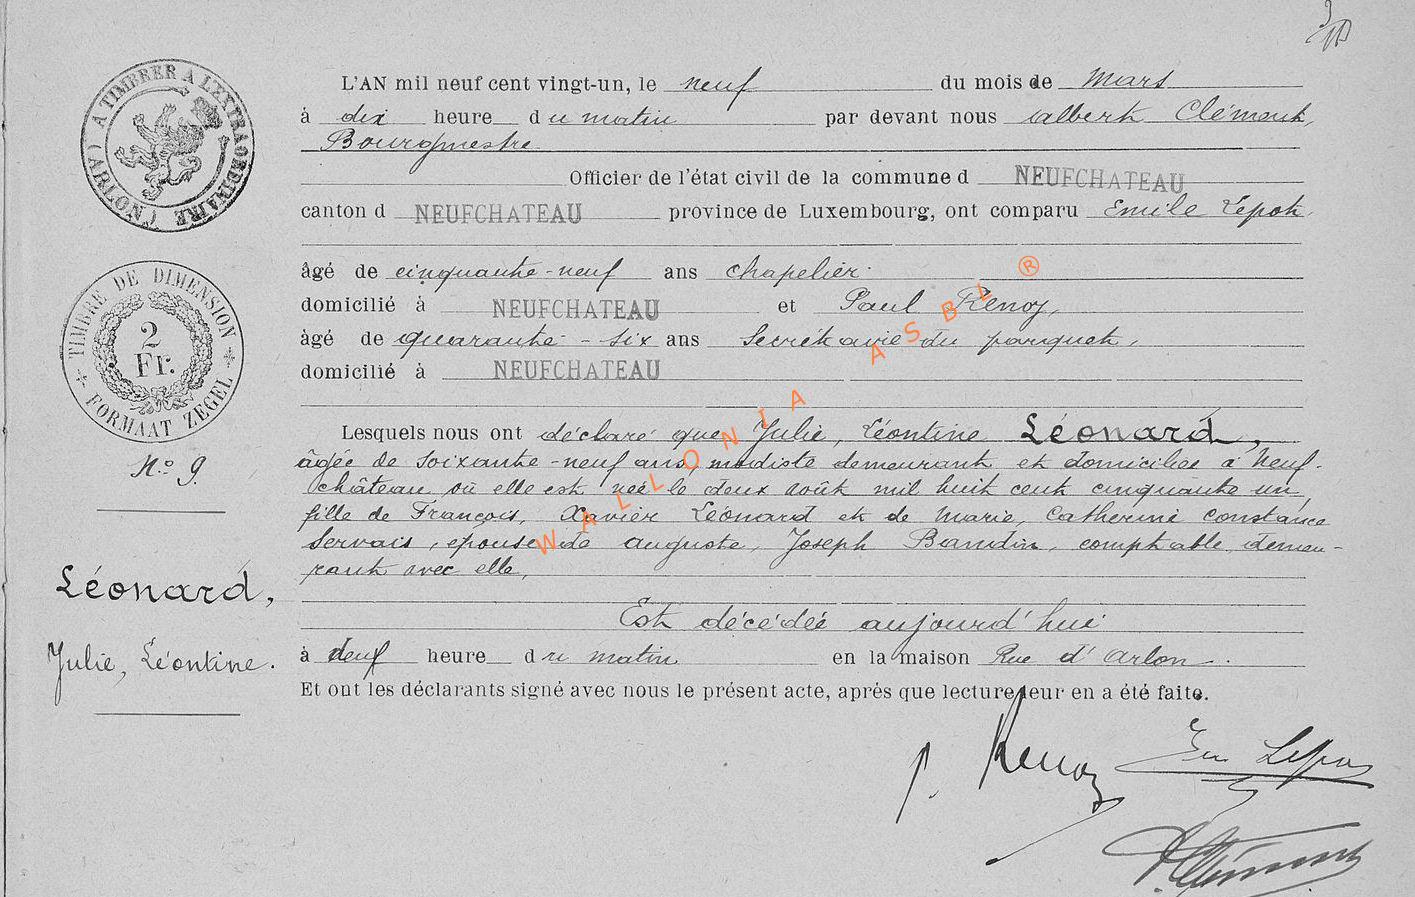 A TIMBRER A L'EXTRAORDINAIRE (ARLON)
TIMBRE DE DIMENSION
2
Fr.
FORMAAT ZEGEL
N.º 9.
Léonard,
Julie, Léontine.
L'AN mil neuf cent vingt-un, le neuf du mois de Mars
à dix heure du matin par devant nous Albert Clément,
Bourgmestre
Officier de l'état civil de la commune d NEUFCHATEAU
canton d NEUFCHATEAU province de Luxembourg, ont comparu Emile Lepot,
âgé de cinquante-neuf ans chapelier
domicilié à NEUFCHATEAU et Paul Renoz,
âgé de quarante-six ans Secrétaire du parquet,
domicilié à NEUFCHATEAU
Lesquels nous ont déclaré que Julie, Léontine Léonard,
âgée de soixante-neuf ans, modiste demeurant et domiciliée à Neuf-
château où elle est née le deux août mil huit cent cinquante un,
fille de François, Xavier Léonard et de Marie, Catherine Constance
Servais, epouse de Auguste, Joseph Baudin, comptable, demeu-
rant avec elle,
Est décédée aujourd'hui
à neuf heure du matin en la maison Rue d'Arlon.
Et ont les déclarants signé avec nous le présent acte, après que lecture leur en a été faite.
P. Renoz Em Lepot
A Clément
WALLONIA ASBL ®